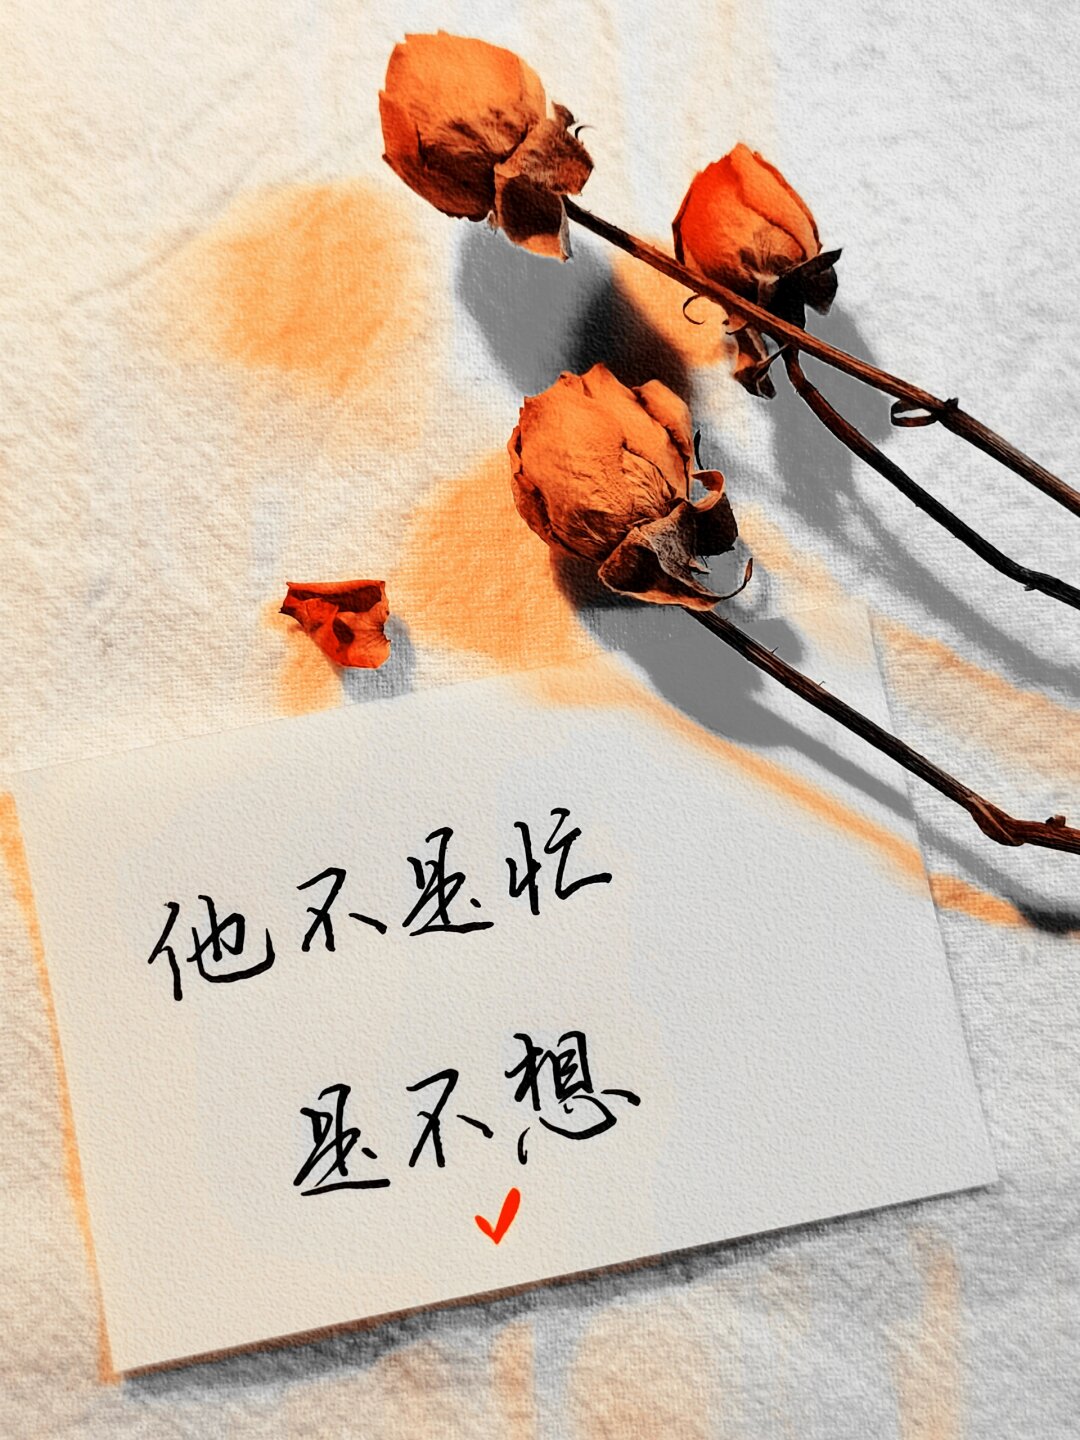 他不是忙
是不想